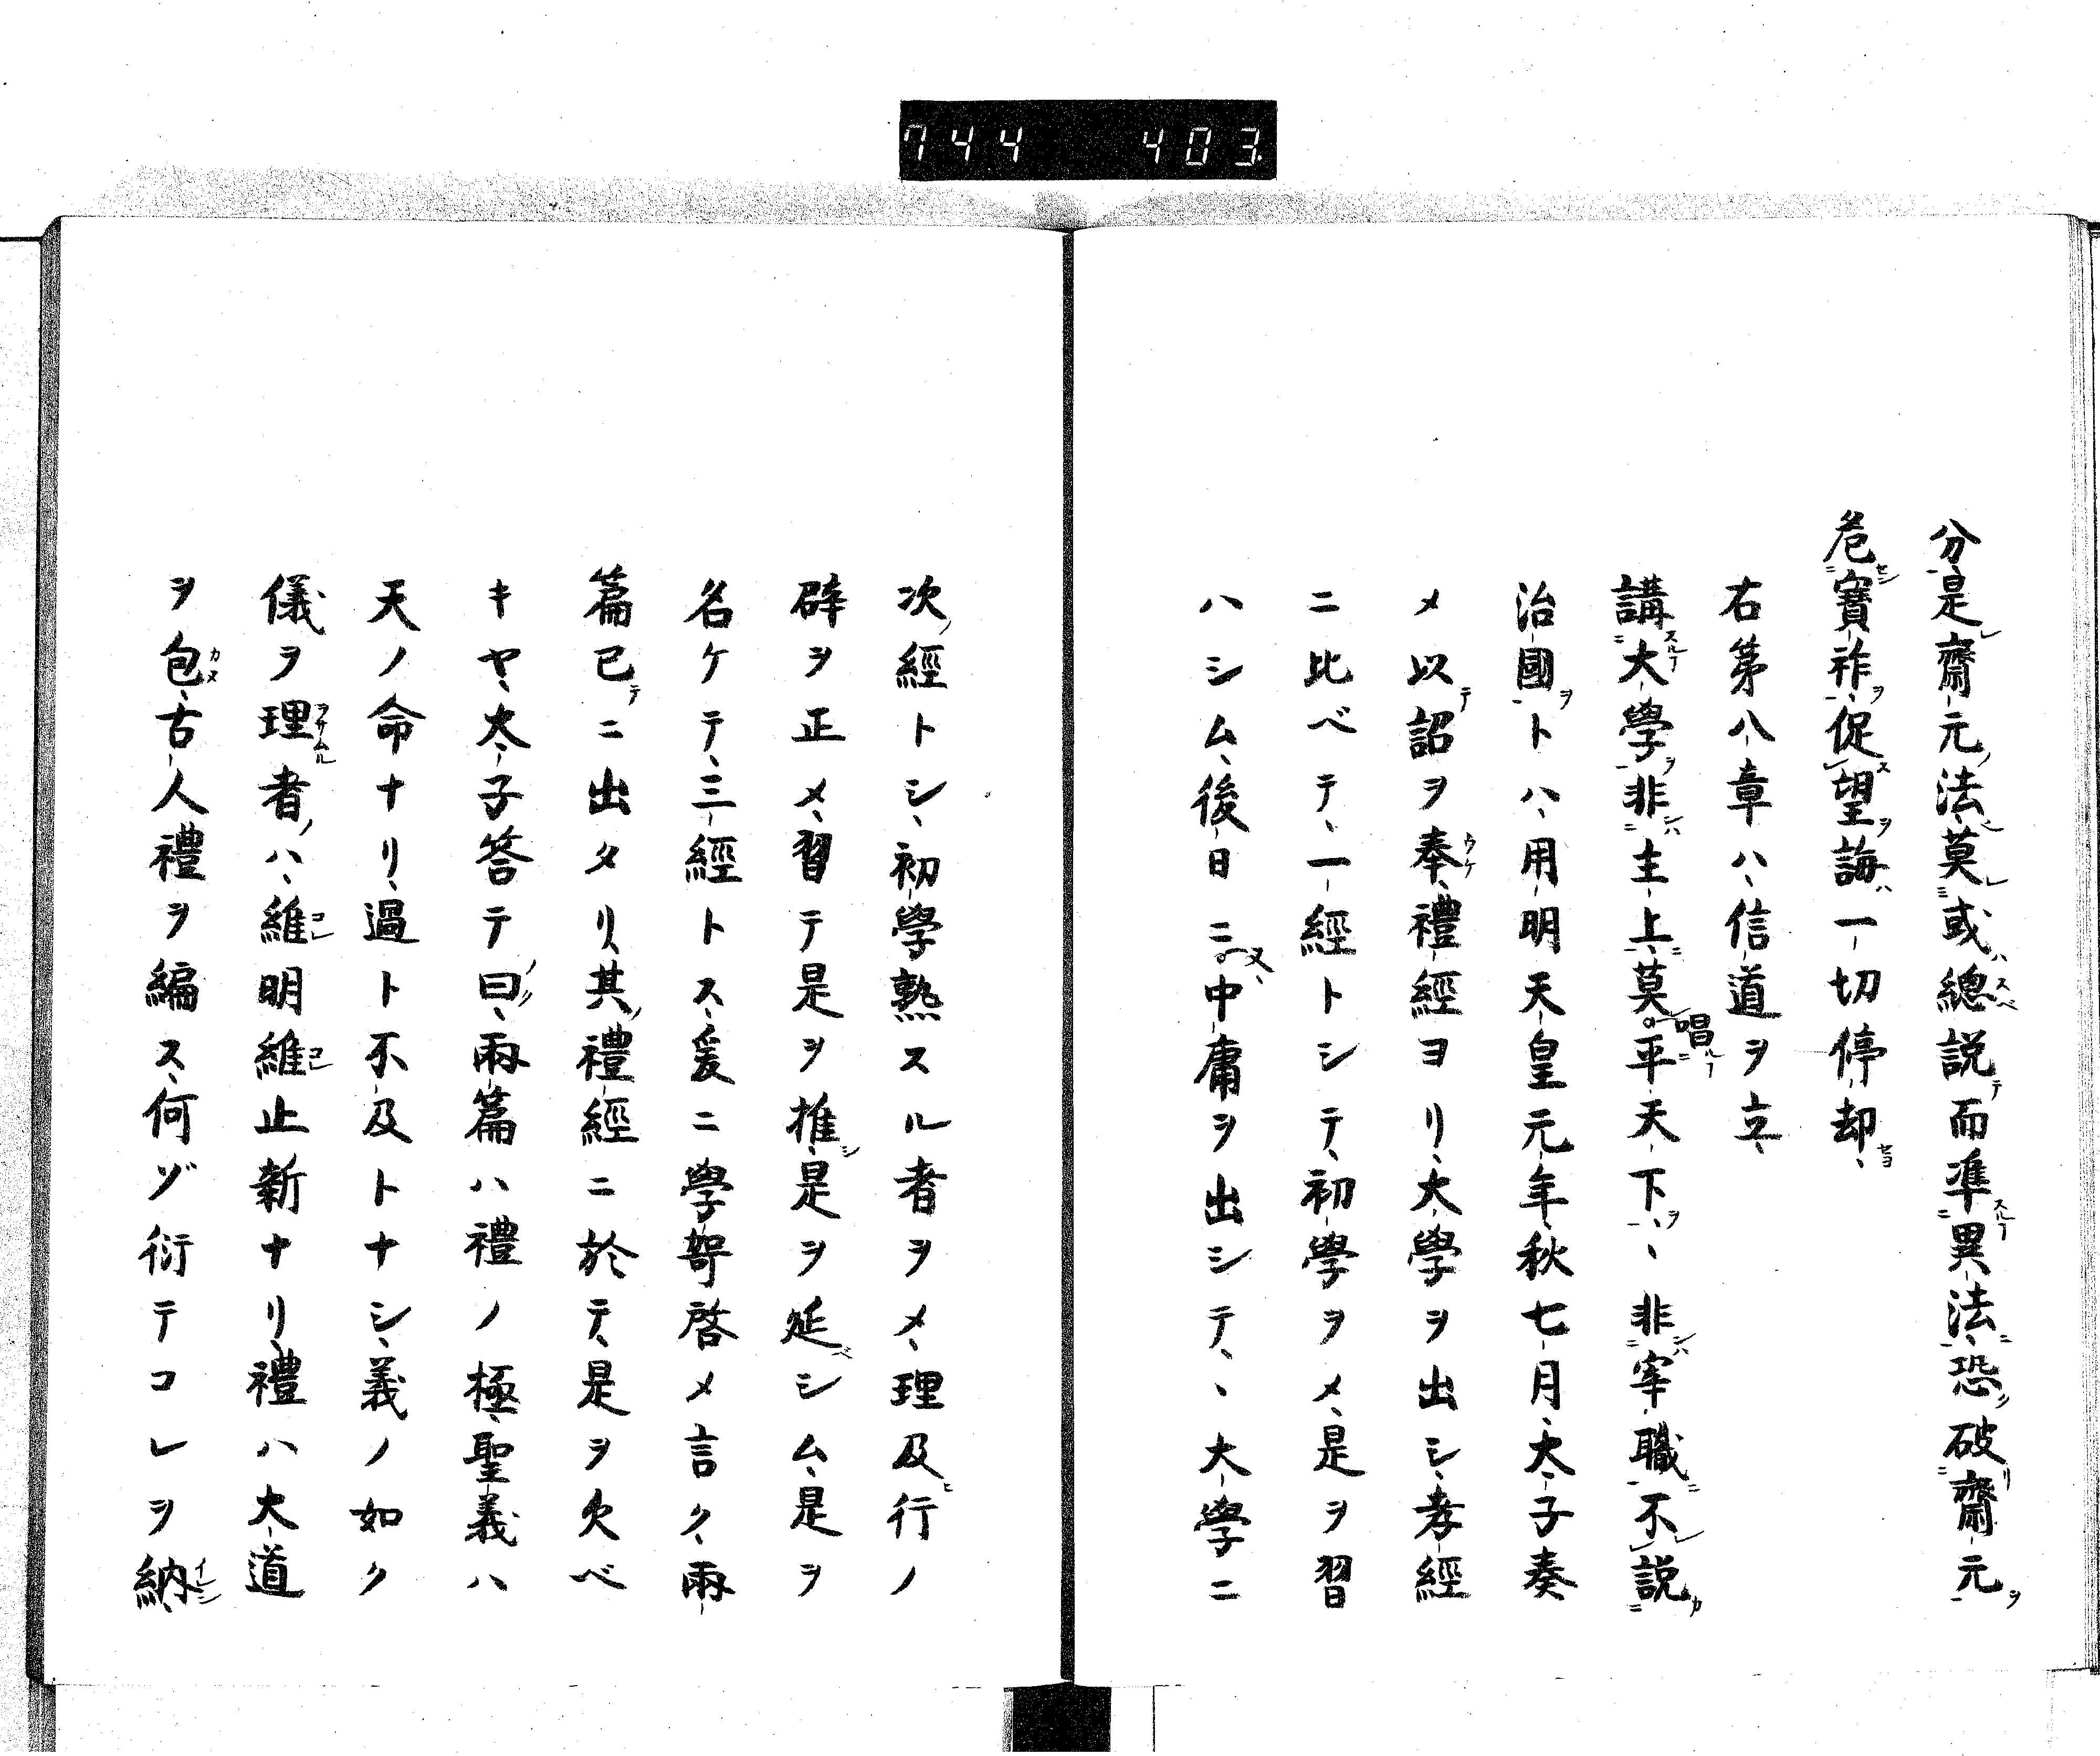 744 403
分是齋元法莫或總説而準異法恐破齋元
危寶祚促望誨一切停却
右第八章ハ、信道ヲ立、
講大學非主上、莫唱平天下、、非宰職不説
治國トハ、用明天皇元年、秋七月、太子奏
メ以詔ヲ奉、禮經ヨリ、大學ヲ出シ、孝經
ニ比ベテ、一經トシテ、初學ヲメ、是ヲ習
ハシム、後日ニ又、中庸ヲ出シテ、、大學ニ
次、經トシ、初學熟スル者ヲメ、理及行ノ
辟ヲ正メ、習テ是ヲ推、是ヲ延シム、是ヲ
名ケテ、三經トス、爰ニ學哿啓メ言ク、兩
篇已ニ出タリ、其禮經ニ於テ、是ヲ欠ベ
キヤ、太子答テ曰、兩篇ハ禮ノ極、聖義ハ
天ノ命ナリ、過ト不及トナシ、義ノ如ク
儀ヲ理者ハ、維明維止新ナリ、禮ハ大道
ヲ包、古人禮ヲ編ス、何ゾ衍テコレヲ納、